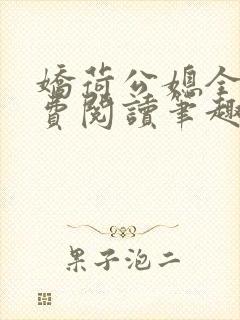 嬌荷公媳全
費閱讀筆趣
果子泡二